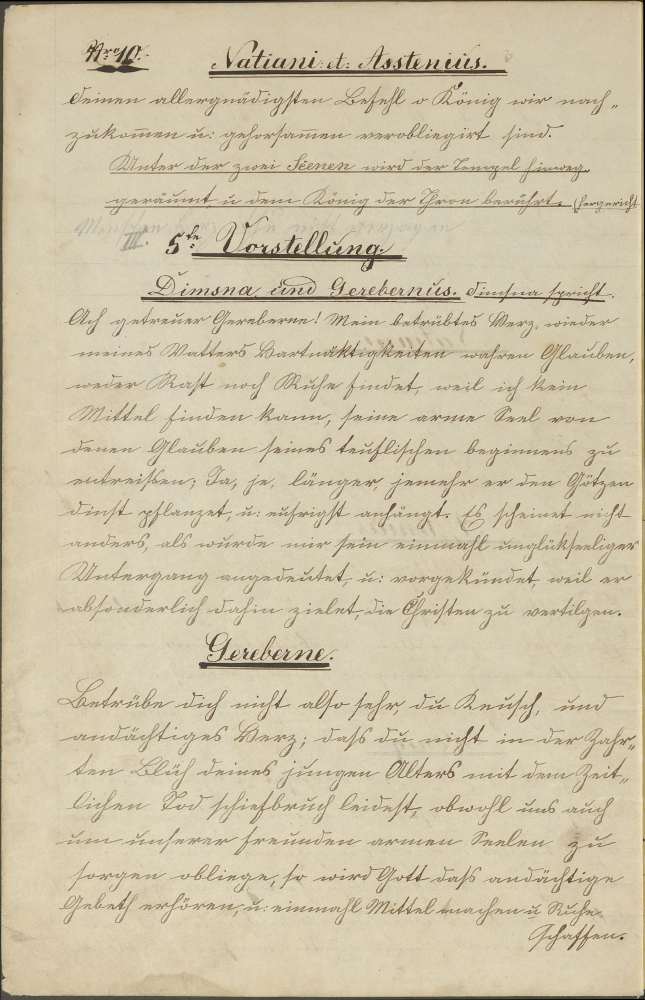 Nro 10.
Natiani: et: Asstenius.
deinen allergnädigsten Befehl o König wir nach„
zukom̅en u: gehorsam̅en verobliegirt sind.
Unter der zwei Scenen wird der Tempel hinweg„
geräumt u dem König der Thron berührt. (hergericht
III.
5te Vorstellung.
Dimsna und Gerebernus. Dimsna spricht.
Ach getreuer Gereberne! Mein betrübtes Herz, wieder
meines Vatters Hartnäktigkeiten wahren Glauben,
weder Rast noch Ruhe findet, weil ich kein
Mittel finden kann, seine arme Seel von
denen Glauben seines teuflischen beginnens zu
entreißen; Ja, je, länger, jemehr er den Götzen
dinst pflanzet, u: eufrigst anhängt. Es scheinet nicht
anders, als wurde mir sein einmahl unglükseeliger
Untergang angedeutet, u: vorgekündet, weil er
absonderlich dahin zielet, die Christen zu vertilgen.
Gereberne.
Betrübe dich nicht also sehr, du Keusch, und
andächtiges Herz; daß du nicht in der Zahr„
ten Blüh deines jungen Alters mit dem Zeit„
lichen Tod schiefbruch leidest, obwohl uns auch
um unserer freunden armen Seelen zu
sorgen obliege, so wird Gott daß andächtige
Gebeth erhören, u: einmahl Mittel machen u Ruhe
schaffen.